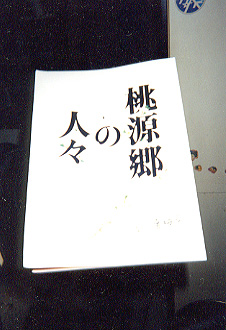 桃源郷
の
人々